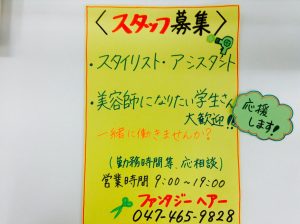 〈スタッフ募集〉
・スタイリスト・アシスタント
・美容師になりたい学生さん
大歓迎!!
応援
します!
一緒に働きませんか?
(勤務時間等、応相談)
営業時間 9:00〜19:00
ファンタジーヘアー
047-465-9828